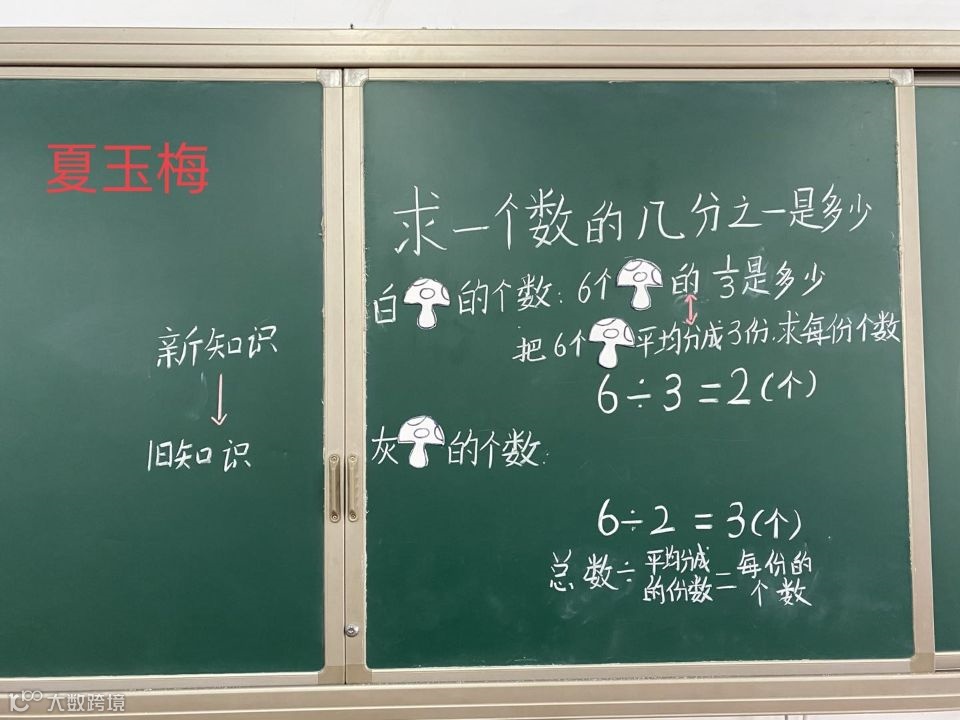 夏玉梅
新知识
旧知识
求一个数的几分之一是多少
白的个数:6个的1/3是多少
把6个平均分成3份.求每份个数
6÷3=2(个)
灰的个数:
6÷2=3(个)
总数÷平均分成的份数=每份的个数
大数跨境